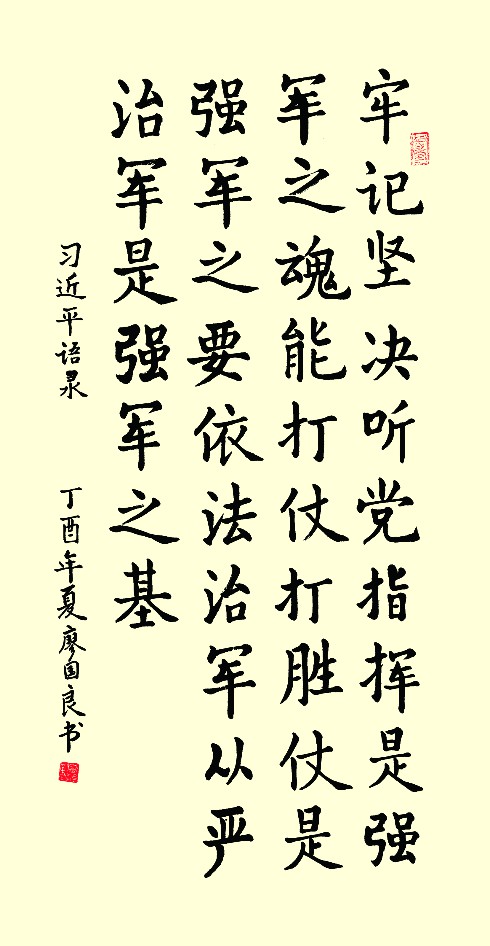 牢记坚决听党指挥是强
军之魂能打仗打胜仗是
强军之要依法治军从严
治军是强军之基
习近平语录
丁酉年夏廖国良书